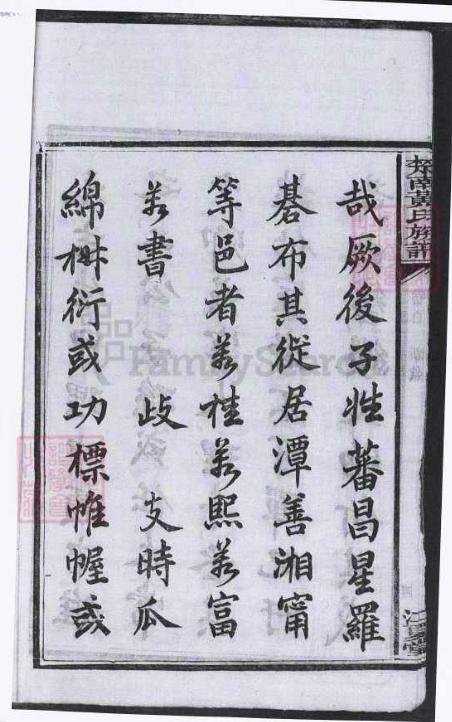 楚南黃氏族譜
哉厥後子姓蕃昌星羅
碁布其從居潭善湘甯
等邑者若桂若熙若富
若書歧支時瓜
綿椒衍或功標帷幄或
江夏堂
FamilySearch